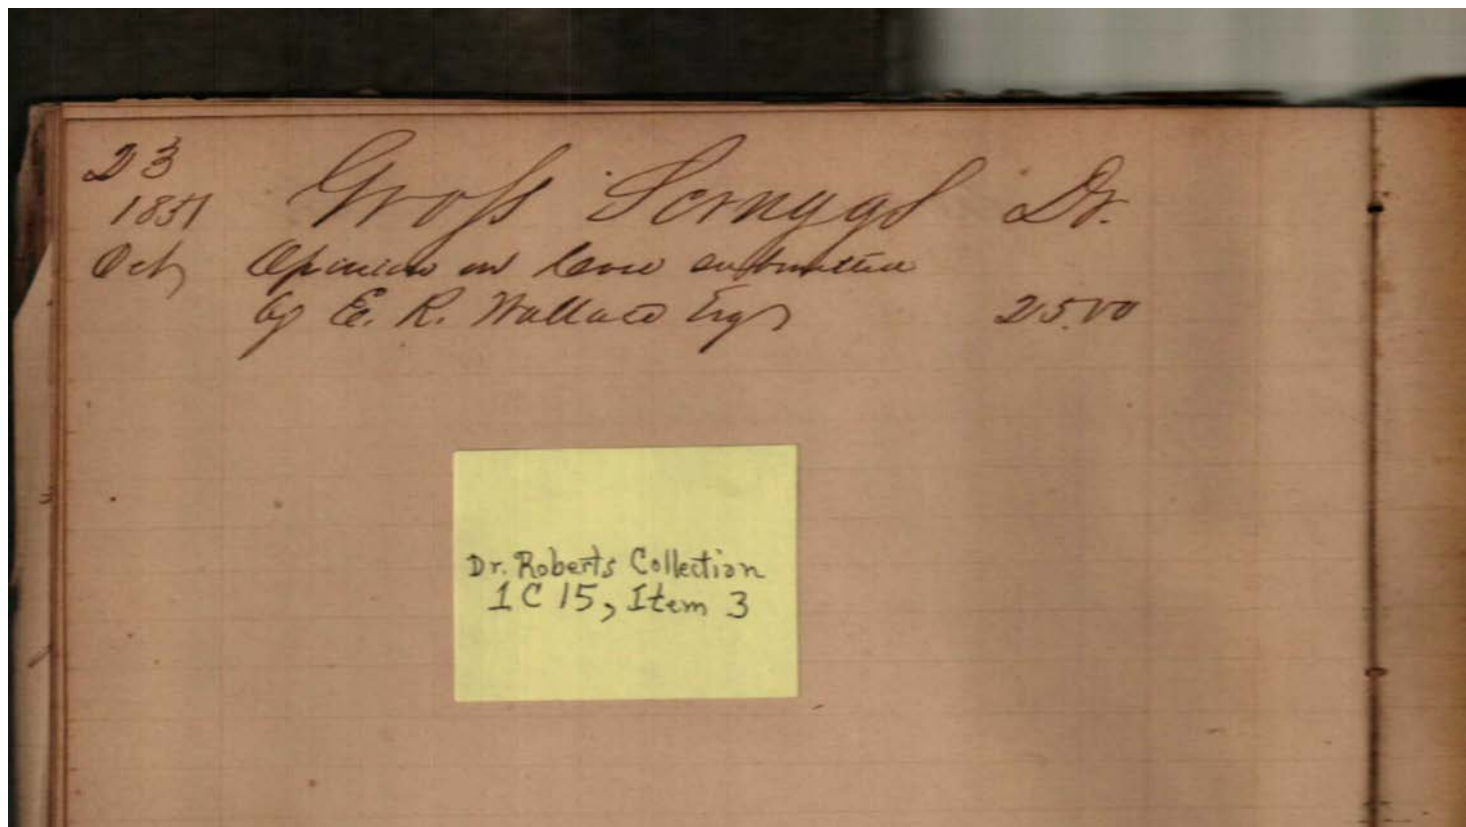 23
1851 Gross Scruggs Dr.
Oct, Opinion on Case submitted
by E. R. Wallace Esqr 25.00
Dr. Roberts Collection
1C15, Item 3